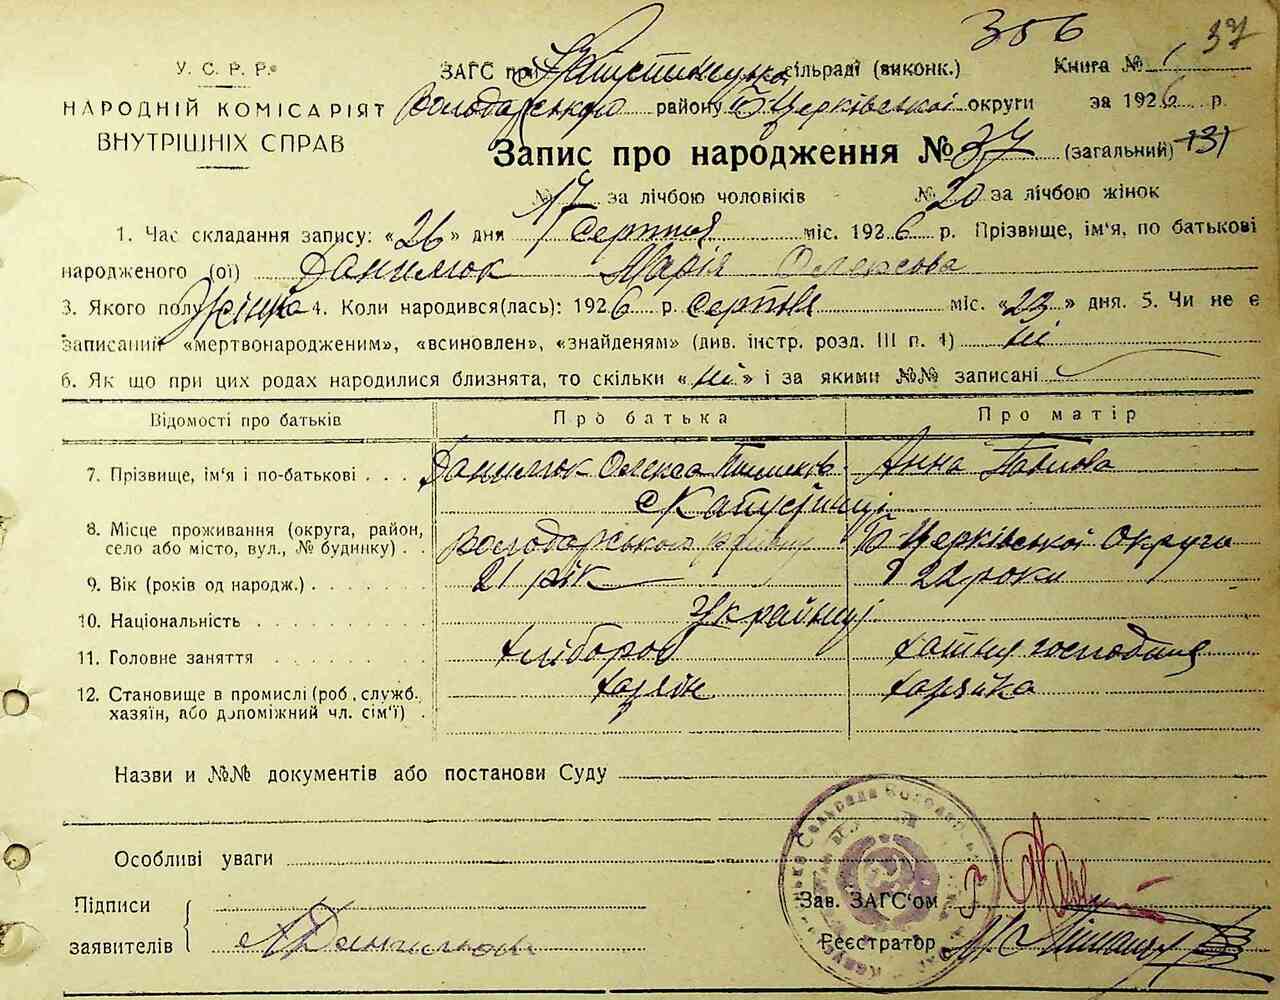 356 37
У. С. Р. Р. ЗАГС при Капустинецькій сільраді (виконк.) Книга № 1
НАРОДНІЙ КОМІСАРІЯТ Володарського району Б Церківської округи за 1926 р.
ВНУТРІШНІХ СПРАВ
Запис про народження № 37 (загальний) 131
№ 17 за лічбою чоловіків № 20 за лічбою жінок
1. Час складання запису: «26» дня серпня міс. 1926 р. Прізвище, ім'я, по батькові
народженого (ої) Данилюк Марія Олексова
3. Якого полу Жінка 4. Коли народився(лась): 1926 р. серпня міс. «23» дня. 5. Чи не є
записаний «мертвонародженим», «всиновлен», «знайденям» (див. інстр. розд. III п. 1) ні
6. Як що при цих родах народилися близнята, то скільки «ні» і за якими №№ записані
Відомості про батьків Про батька Про матір
7. Прізвище, ім'я і по-батькові . . . Данилюк Олекса Анна Павлова
с Капустинці
8. Місце проживання (округа, район,
село або місто, вул., № будинку) . . Володарського району Б Церківської Округи
9. Вік (років од народж.) . . . . . . . 21 рік 22 роки
10. Національність . . . . . . . . . . Українці
11. Головне заняття . . . . . . . . . хлібороб хатня господиня
12. Становище в промислі (роб., служб. хазяїн хазяйка
хазяїн, або допоміжний чл. сім'ї) .
Назви и №№ документів або постанови Суду
Особливі уваги
Підписи
заявителів Данилюк
Зав. ЗАГС'ом
Реєстратор